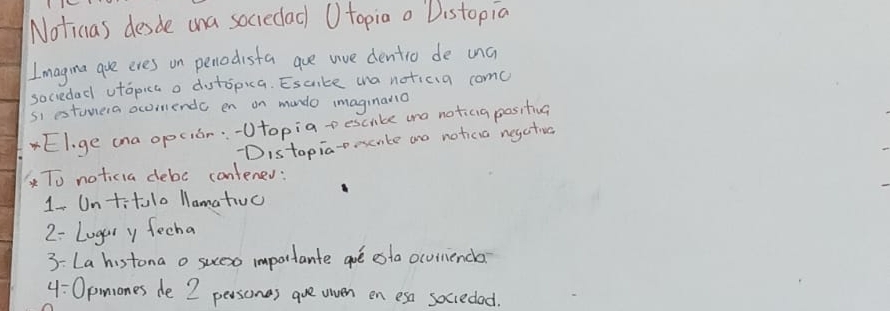 Noticias desde una sociedad Utopia o Distopia
Imagina que eres un periodista que vive dentro de una
sociedad utópica o distópica. Escribe una noticia como
si estuviera ocurriendo en un mundo imaginario
*Elige una opción: -Utopia → escribe una noticia positiva
-Distopia → escribe una noticia negativa
*Tu noticia debe contener:
1- Un titulo llamativo
2- Lugar y fecha
3- La historia o suceso importante qué esta ocurriendo
4- Opiniones de 2 personas que viven en esa sociedad.